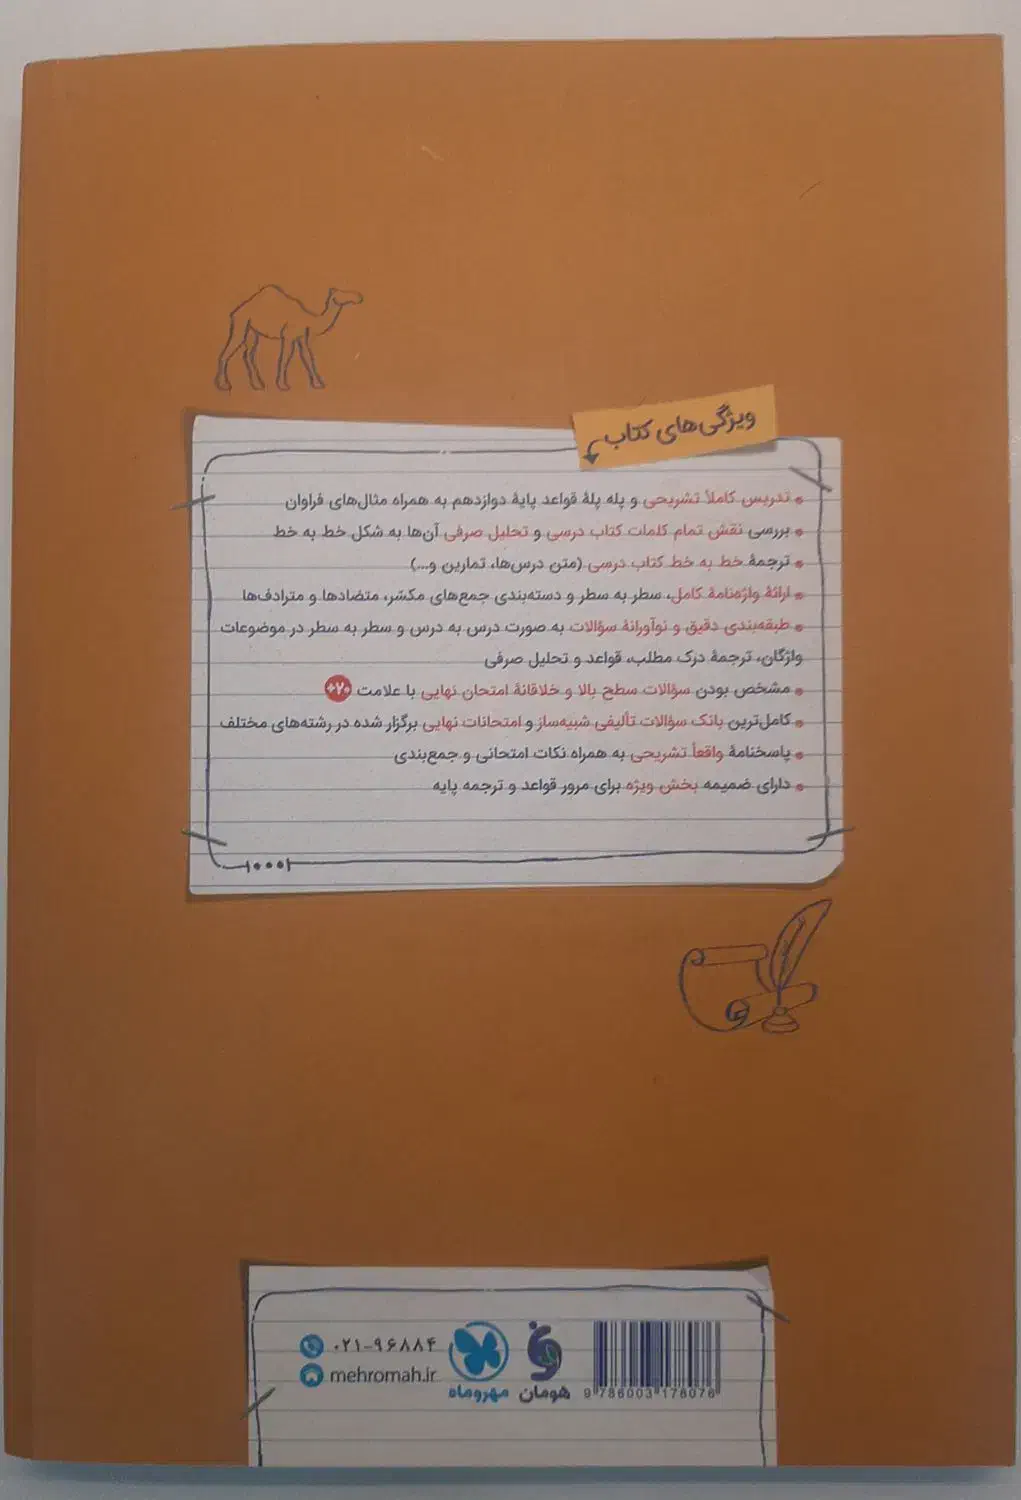 ویژگی‌های کتاب
تدریس کاملاً تشریحی و پله پلهٔ قواعد پایهٔ دوازدهم به همراه مثال‌های فراوان
بررسی نقش تمام کلمات کتاب درسی و تحلیل صرفی آن‌ها به شکل خط به خط
ترجمهٔ خط به خط کتاب درسی (متن درس‌ها، تمارین و...)
ارائهٔ واژه‌نامهٔ کامل، سطر به سطر و دسته‌بندی جمع‌های مکسّر، متضادها و مترادف‌ها
طبقه‌بندی دقیق و نوآورانهٔ سؤالات به صورت درس به درس و سطر به سطر در موضوعات
واژگان، ترجمهٔ درک مطلب، قواعد و تحلیل صرفی
مشخص بودن سؤالات سطح بالا و خلاقانهٔ امتحان نهایی با علامت +۲۰
کامل‌ترین بانک سؤالات تألیفی شبیه‌ساز و امتحانات نهایی برگزار شده در رشته‌های مختلف
پاسخنامهٔ واقعاً تشریحی به همراه نکات امتحانی و جمع‌بندی
دارای ضمیمه بخش ویژه برای مرور قواعد و ترجمه پایه
۰۲۱-۹۶۸۸۴
mehromah.ir
هومان
مهروماه
9 786003 178076